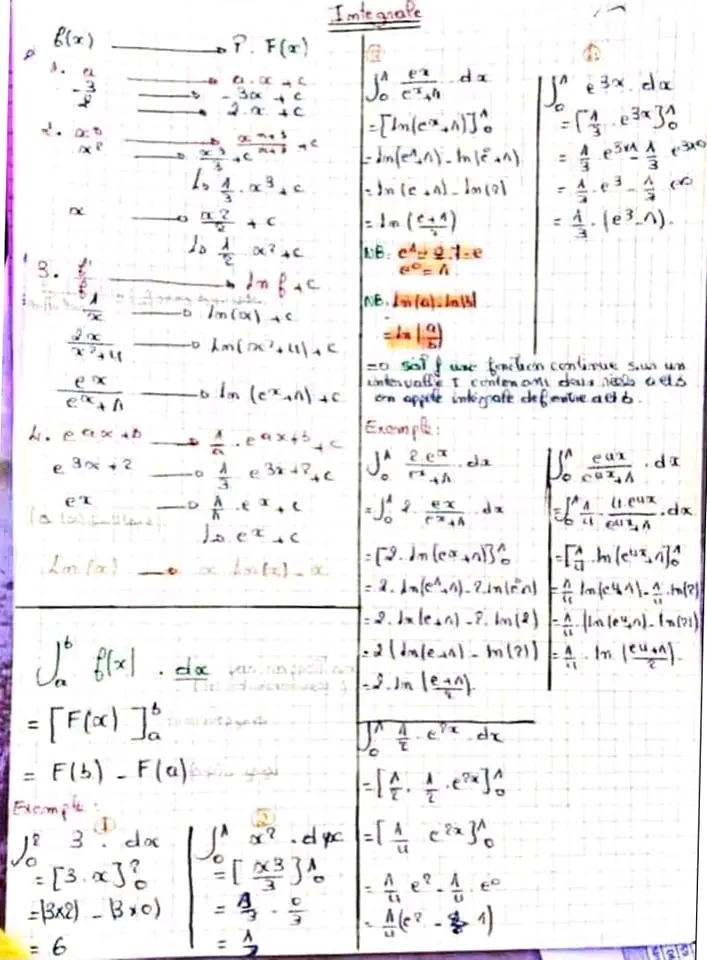 Integrale
f(x) → P. F(x)
1. a → a.x + c
-3 → -3x + c
2 → 2.x + c
2. xⁿ → xⁿ⁺¹/n+1 + c
x² → x³/3 + c
↳ 1/3 . x³ + c
x → x²/2 + c
↳ 1/2 . x² + c
3. f'/f → ln f + c
1/x → ln(x) + c
2x/x²+4 → ln(x²+4) + c
eˣ/eˣ+1 → ln(eˣ+1) + c
4. e^ax+b → 1/a . e^ax+b + c
e^3x+2 → 1/3 e^3x+2 + c
eˣ → 1/1 . eˣ + c
↳ eˣ + c
ln(x) → x ln(x) - x
∫ₐᵇ f(x) . dx
= [F(x)]ₐᵇ
= F(b) - F(a)
Exemple :
①
∫₀² 3 . dx
= [3.x]₀²
= (3×2) - (3×0)
= 6
②
∫₀¹ x² . dx
= [x³/3]₀¹
= 1/3 - 0/3
= 1/3
③
∫₀¹ eˣ/eˣ+1 . dx
= [ln(eˣ+1)]₀¹
= ln(e¹+1) - ln(e⁰+1)
= ln(e+1) - ln(2)
= ln(e+1/2)
NB: e¹ = 2.7 = e
e⁰ = 1
NB: ln(a) - ln(b)
= ln(a/b)
④
∫₀¹ e^3x . dx
= [1/3 . e^3x]₀¹
= 1/3 . e^3×1 - 1/3 e^3×0
= 1/3 . e³ - 1/3 e⁰
= 1/3 . (e³ - 1).
=> soit f une fonction continue sur un
intervalle I contenant deux réels a et b
on appelle intégrale de f entre a et b.
Exemple :
∫₀¹ 2.eˣ/eˣ+1 . dx
= ∫₀¹ 2. eˣ/eˣ+1 . dx
= [2. ln(eˣ+1)]₀¹
= 2. ln(e¹+1) - 2. ln(e⁰+1)
= 2. ln(e+1) - 2. ln(2)
= 2(ln(e+1) - ln(2))
= 2. ln(e+1/2).
∫₀¹ e^4x/e^4x+1 . dx
= ∫₀¹ 1/4 . 4.e^4x/e^4x+1 . dx
= [1/4 . ln(e^4x+1)]₀¹
= 1/4 ln(e⁴+1) - 1/4 . ln(2)
= 1/4 . (ln(e⁴+1) - ln(2))
= 1/4 . ln(e⁴+1/2).
∫₀¹ 1/2 . e^2x . dx
= [1/2 . 1/2 . e^2x]₀¹
= [1/4 e^2x]₀¹
= 1/4 e² - 1/4 . e⁰
= 1/4 (e² - 1)